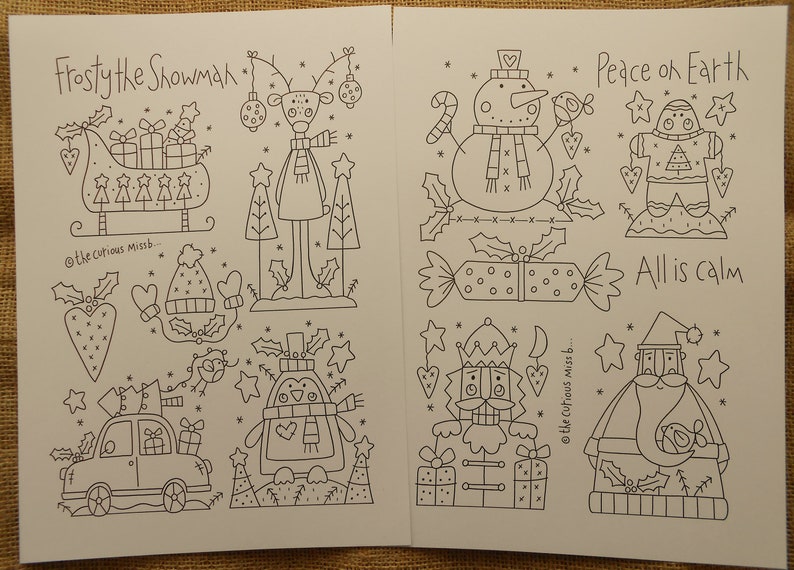 Frosty the Snowman
© the curious miss b...
Peace on Earth
All is calm
© the curious miss b...